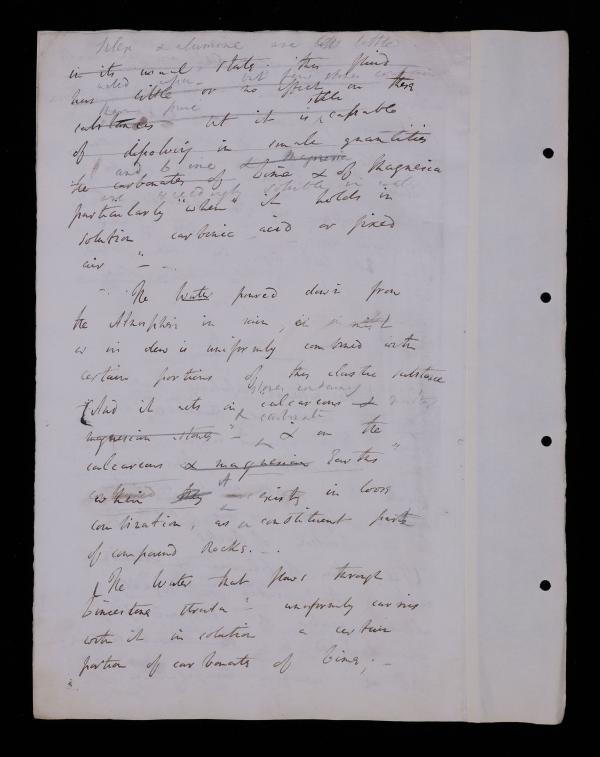 Silex & alumine are but little
in its usual state. this fluid
has little or no effect on these
pure
substances but it is capable
little
of disolving in small quantities
and Lime & Magnesia
the carbonates of Lime & of Magnesia
soluble in
particularly "when" it holds in
solution carbonic acid or fixed
air " – -.
- The Water poured down from
the Atmosphere in rain, in mist
or in dew is uniformly combined with
certain portions of this elastic substance
stones containing
And it acts in calcareous &
carbonate
magnesian stones " – & on the
calcareous & magnesian Earths "
when they exists in loose
combination, as a constituent parts
of compound Rocks. -.
The Water that flows through
Limestone strata " – uniformly carries
with it in solution a certain
portion of carbonate of Lime; –